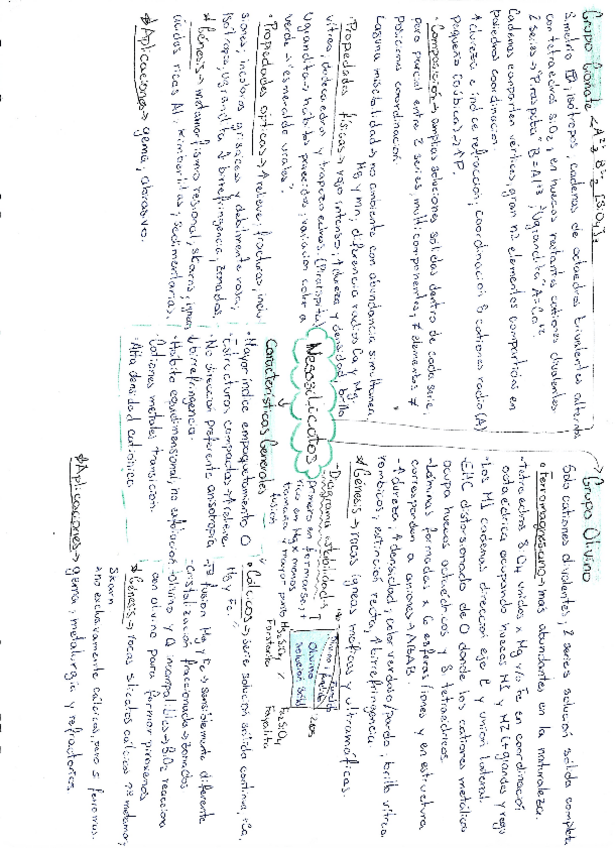 Grupo Granate A²⁺₃ B³⁺₂ [SiO₄]₃
Simetría, isotropos, cadenas de octaedros trivalentes alternan
con tetraedros SiO₄, en huecos restantes cationes divalentes.
2 series→"Piralspita" B=Al⁺³, "Ugrandita" A=Ca⁺²
Cadenas comparten vértices, gran nº elementos compartidos en
poliedros coordinación.
↑ dureza e índice refracción, coordinación 8 cationes radio (A)
pequeño (cúbica)→↑P
• Composición→amplias soluciones sólidas dentro de cada serie
pero parcial entre 2 series, multicomponentes, ≠ elementos ≠
posiciones coordinación.
Laguna miscibilidad→no ambiente con abundancia simultánea
Mg y Mn, diferencia radios Ca y Mg.
• Propiedades físicas→rojo intenso, ↑dureza y densidad, brillo
vítreo, dodecaedros y trapezoedros. (Piralspita)
Ugrandita→hábitos parecidos, variación color a
verde→"esmeralda urales"
• Propiedades ópticas→↑relieve, fracturas, inclu
siones, incoloros, grisáceos y débilmente rosa,
isótropo, ugrandita ↓birrefringencia, zonados.
* Génesis→metamorfismo regional, skarns, ígneas
ácidas ricas Al, kimberlitas, sedimentarias.
* Aplicaciones→gema, abrasivo.
Nesosilicatos
Características Generales
• Mayor índice empaquetamiento O
• Estructuras compactas→↑relieve
• No dirección preferente anisotropía
↓birrefringencia.
• Hábito equidimensional, no exfoliación
• Cationes metales transición.
• Alta densidad catiónica
Grupo Olivino
Solo cationes divalentes, 2 series solución sólida completa
• Ferromagnesiano→más abundantes en la naturaleza.
- Tetraedros SiO₄ unidos x Mg y/o Fe en coordinación
octaédrica ocupando huecos M1 y M2 (+grande y
- Los M1 cadenas dirección eje c y unión lateral.
- EHC distorsionado de O donde los cationes metálicos
ocupa huecos octaédricos y Si tetraédricos.
- Láminas formadas x 6 esferas/iones y en estructura
corresponden a aniones→ABAB.
- ↑dureza, ↑densidad, color verdoso/pardo, brillo vítreo,
rómbicos, extinción recta, ↑birrefringencia.
* Génesis→rocas ígneas máficas y ultramáficas.
- Diagrama estabilidad→
primero en formarse, +
rico en Mg x enlaces
y mayor punto
fusión
Olivino
solución sólida
1205
Mg₂SiO₄ / Fe₂SiO₄
Forsterita Fayalita
• Cálcicos→serie solución sólida continua, Ca,
Mg y Fe.
→P fusión Mg y Fe→sensiblemente diferente
- cristalización fraccionada→zonados
- olivino y Q incompatibles→SiO₂ reacciona
con olivino para formar piroxenos
* Génesis→rocas silicatos cálcicos
skarn
→no exclusivamente cálcicos, pero si ferromag.
* Aplicaciones→gema, metalurgia y refractarios.